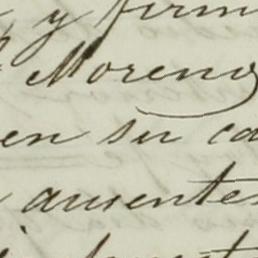 y firm
Moreno
en su ca
ausentes